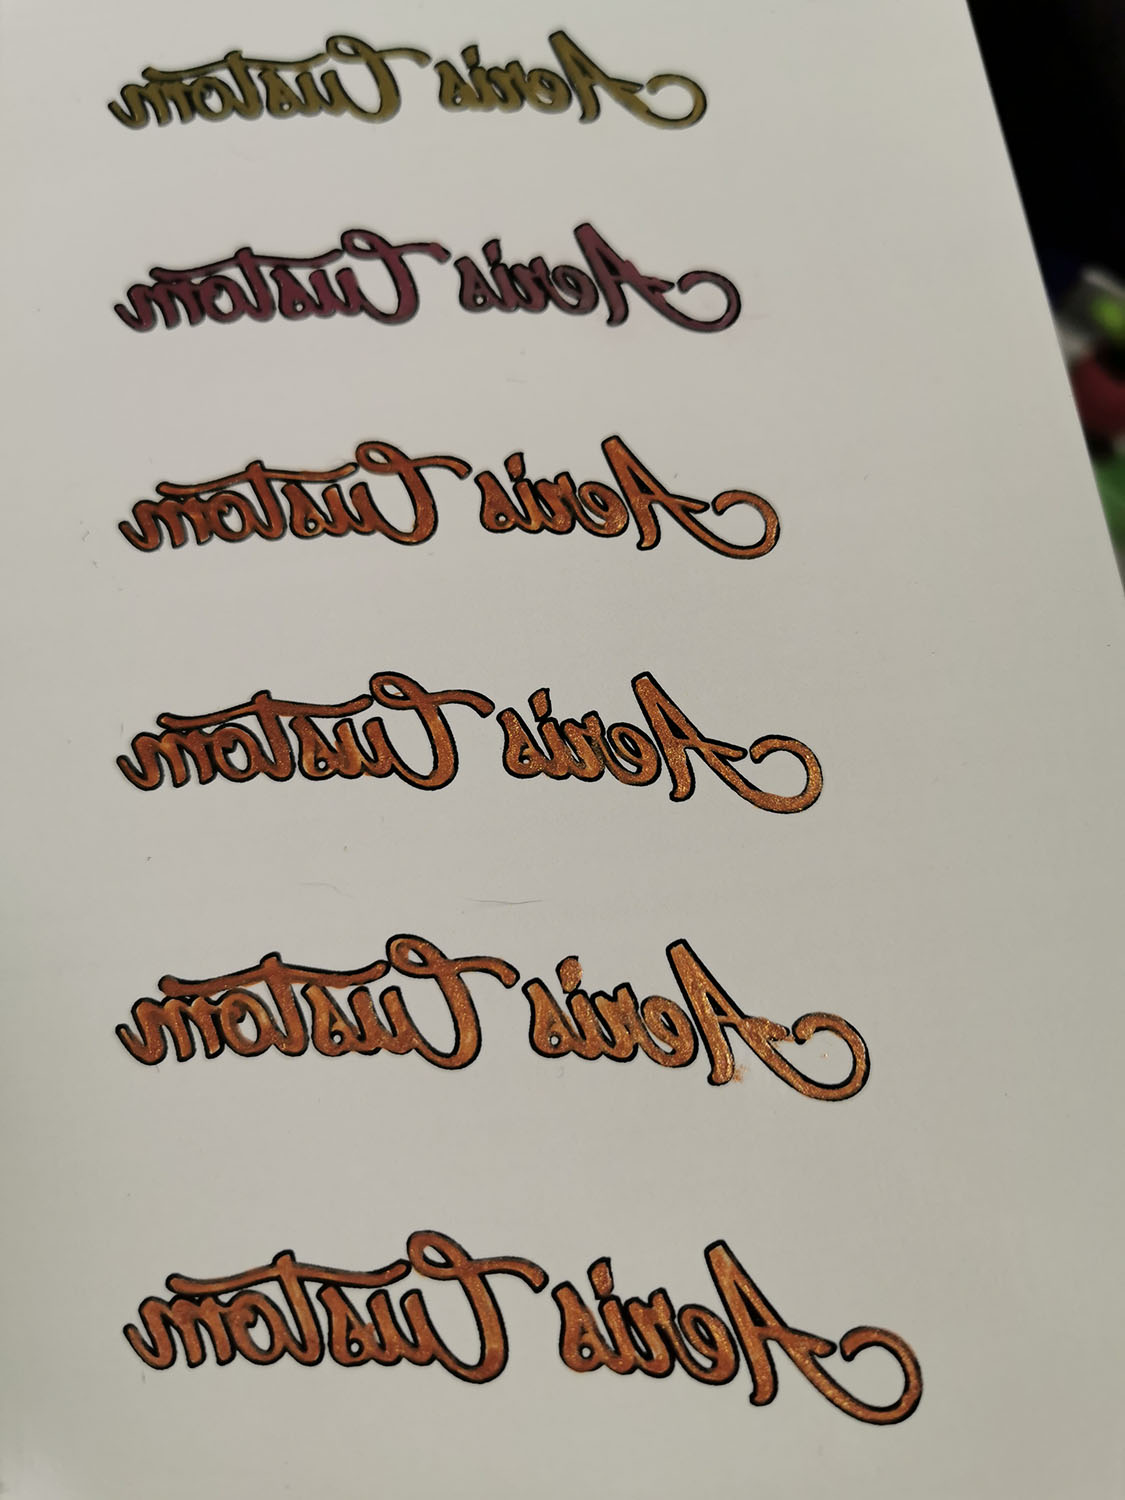 Aeris Custom
Aeris Custom
Aeris Custom
Aeris Custom
Aeris Custom
Aeris Custom